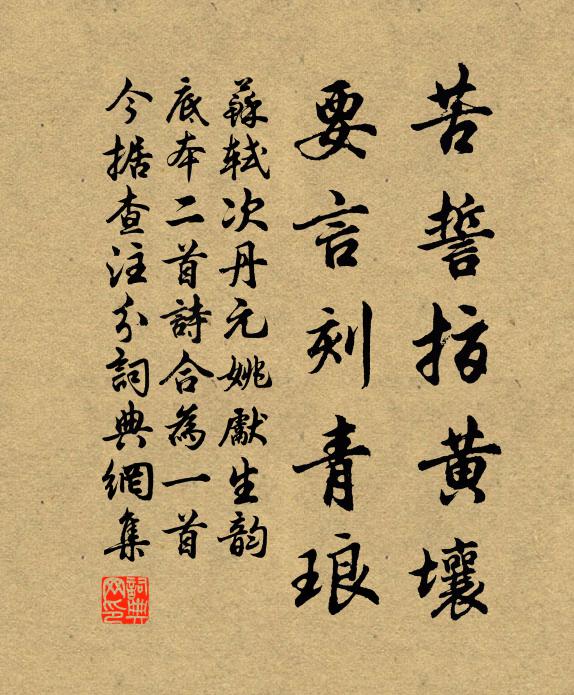 苦誓指黃壤
要言刻青琅
蘇軾次丹元姚獻生韵
底本二首詩合為一首
今据查注分詞典網集
詞典网印